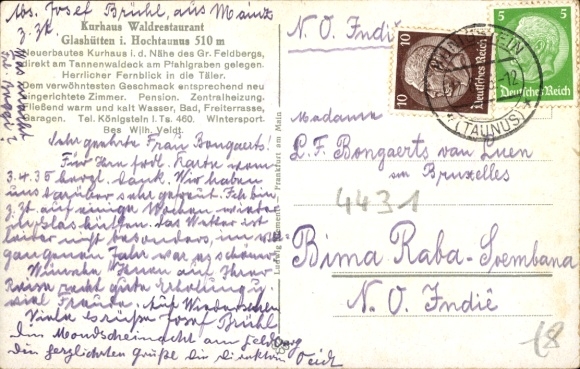 Abs. Josef Brühl, aus Mainz
z. Zt.
Kurhaus Waldrestaurant
Glashütten i. Hochtaunus 510 m
Neuerbautes Kurhaus i. d. Nähe des Gr. Feldbergs,
direkt am Tannenwaldeck am Pfahlgraben gelegen.
Herrlicher Fernblick in die Täler.
Dem verwöhntesten Geschmack entsprechend neu
eingerichtete Zimmer. Pension. Zentralheizung.
Fließend warm und kalt Wasser, Bad, Freiterrasse,
Garagen. Tel. Königstein i. Ts. 460. Wintersport.
Bes. Wilh. Veidt.
Sehr geehrte Frau Bongaerts!
Für Ihre frdl. Karte vom
3.4.35 herzl. Dank. Wir haben
uns darüber sehr gefreut. Ich bin
z. Zt. auf einige Wochen
Das Wetter ist
leider nicht besonders, im
war es schöner
Wünsche Ihnen auf Ihrer
Reise recht gute Erholung u.
viel Freude. Auf Wiedersehen
Viele Grüße Josef Brühl
Im Mondscheinnacht am Feldberg
die herzlichsten Grüße Die Direktion Veidt
Ludwig Klement, Frankfurt am Main
N. O. Indië
10
10
Deutsches Reich
5
5
Deutsches Reich
(TAUNUS)
Madame
L. F. Bongaerts van Luen
Bruxelles
4431
Bima Raba-Soembana
N. O. Indië